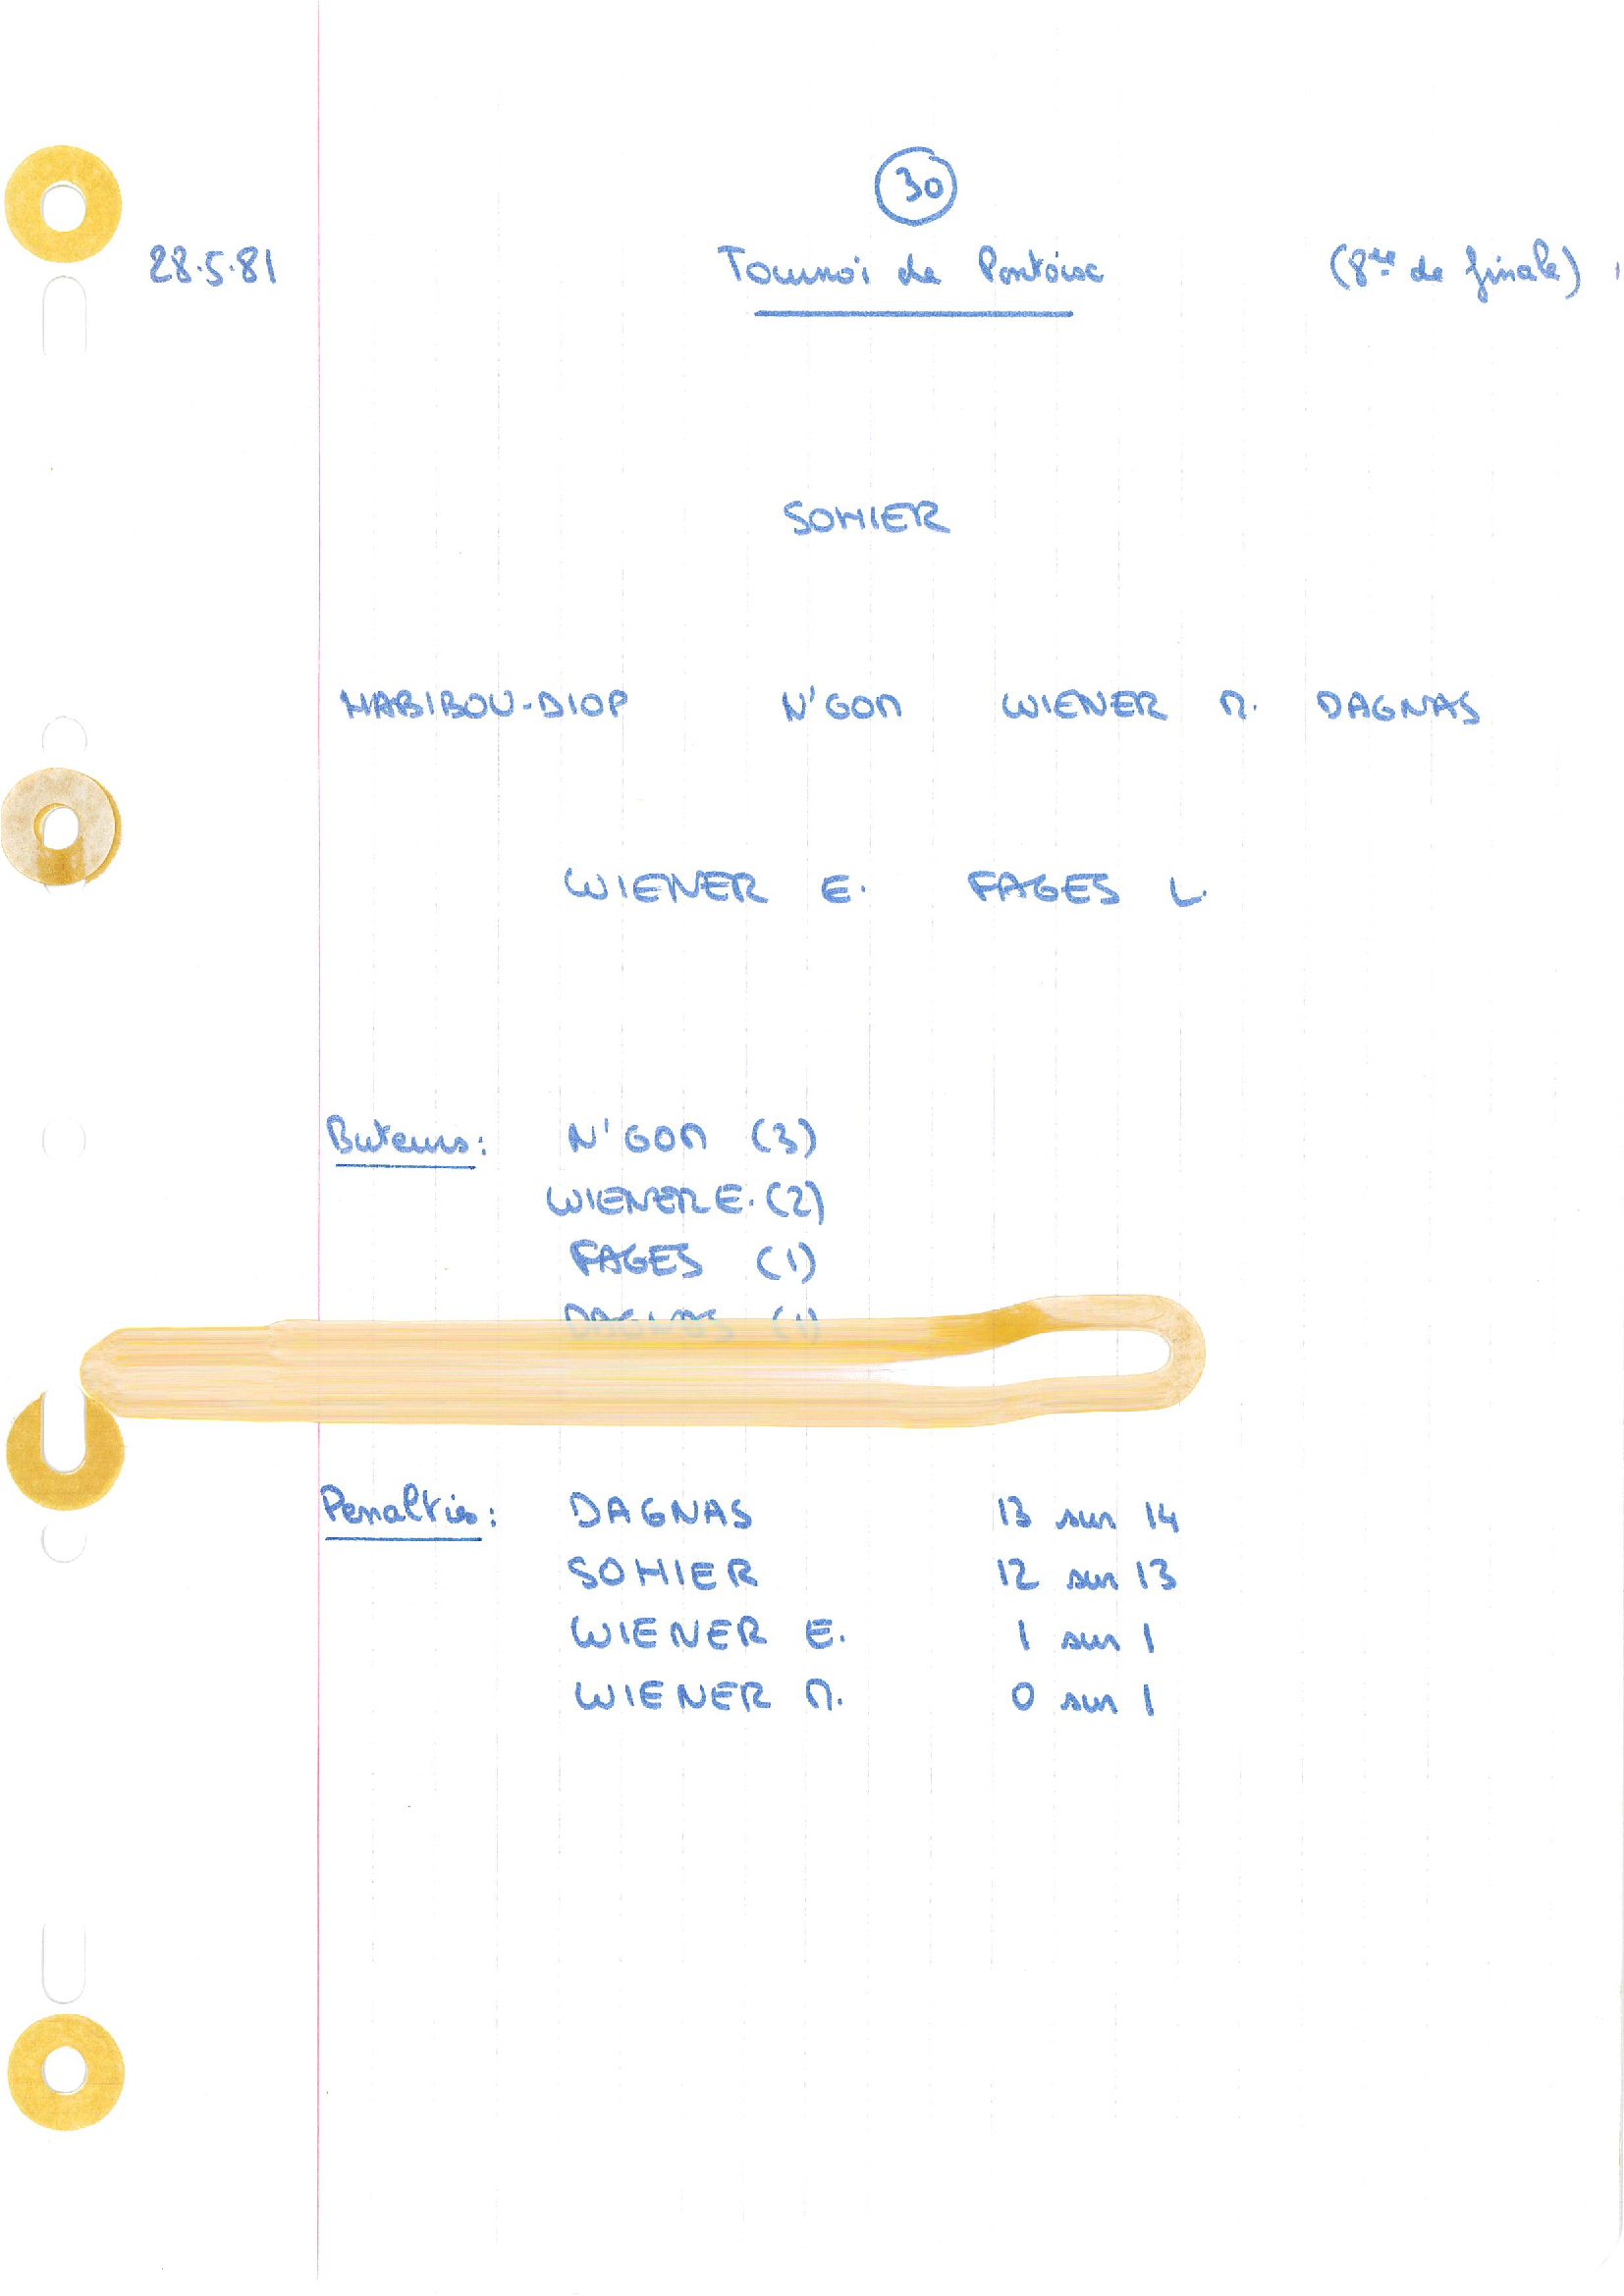 30
28.5.81 Tournoi de Pontoise (8ème de finale)
SOHIER
HABIBOU-DIOP N'GOM WIENER M. DAGNAS
WIENER E. FAGES L.
Buteurs: N'GOM (3)
WIENER E. (2)
FAGES (1)
DAGNAS (1)
Penalties: DAGNAS 13 sur 14
SOHIER 12 sur 13
WIENER E. 1 sur 1
WIENER M. 0 sur 1